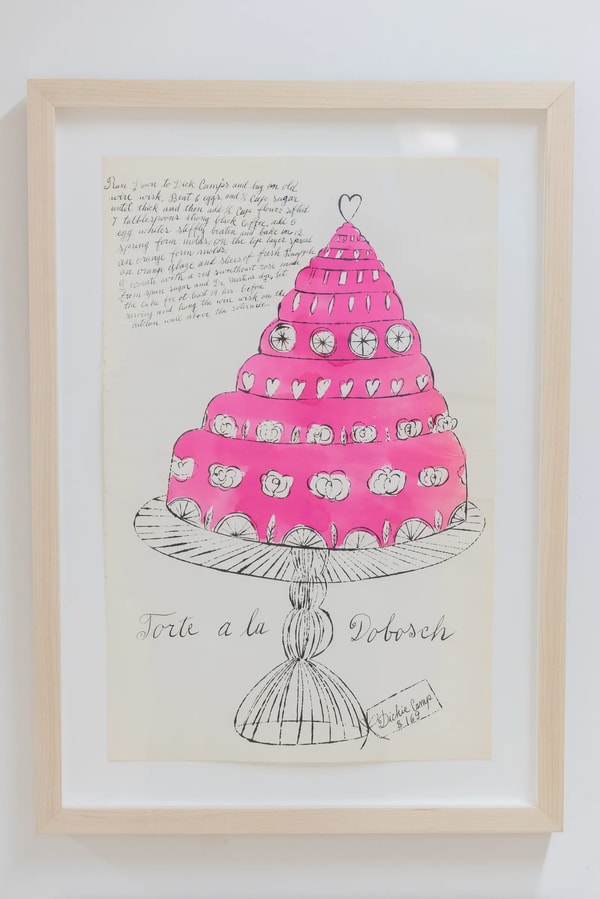 Run Down to Dick Camps and buy an old
wire wisk. Beat 6 eggs and ½ Cup sugar
until thick and then add ¾ Cup flour sifted
7 tabblespoons strong black Coffee, add 6
egg whites stiffly beaten and bake in 12
spring form molds. on the eye layer spread
an orange form molds.
on orange glaze and slices of fresh Pineapple
Decorate with a red sweetheart rose made
from spun sugar and Dr. Martins dye. let
the cake sit at least 14 hrs. before
serving and hang the wire wisk on the
kitchen wall above the rotisserie.
Torte a la Dobosch
Dickie Camp
$ 1.69